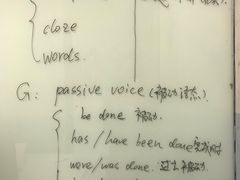 cloze
words.
G: passive voice (被动语态).
be done 被动
has/have been done 完成时
were/was done. 过去被动.